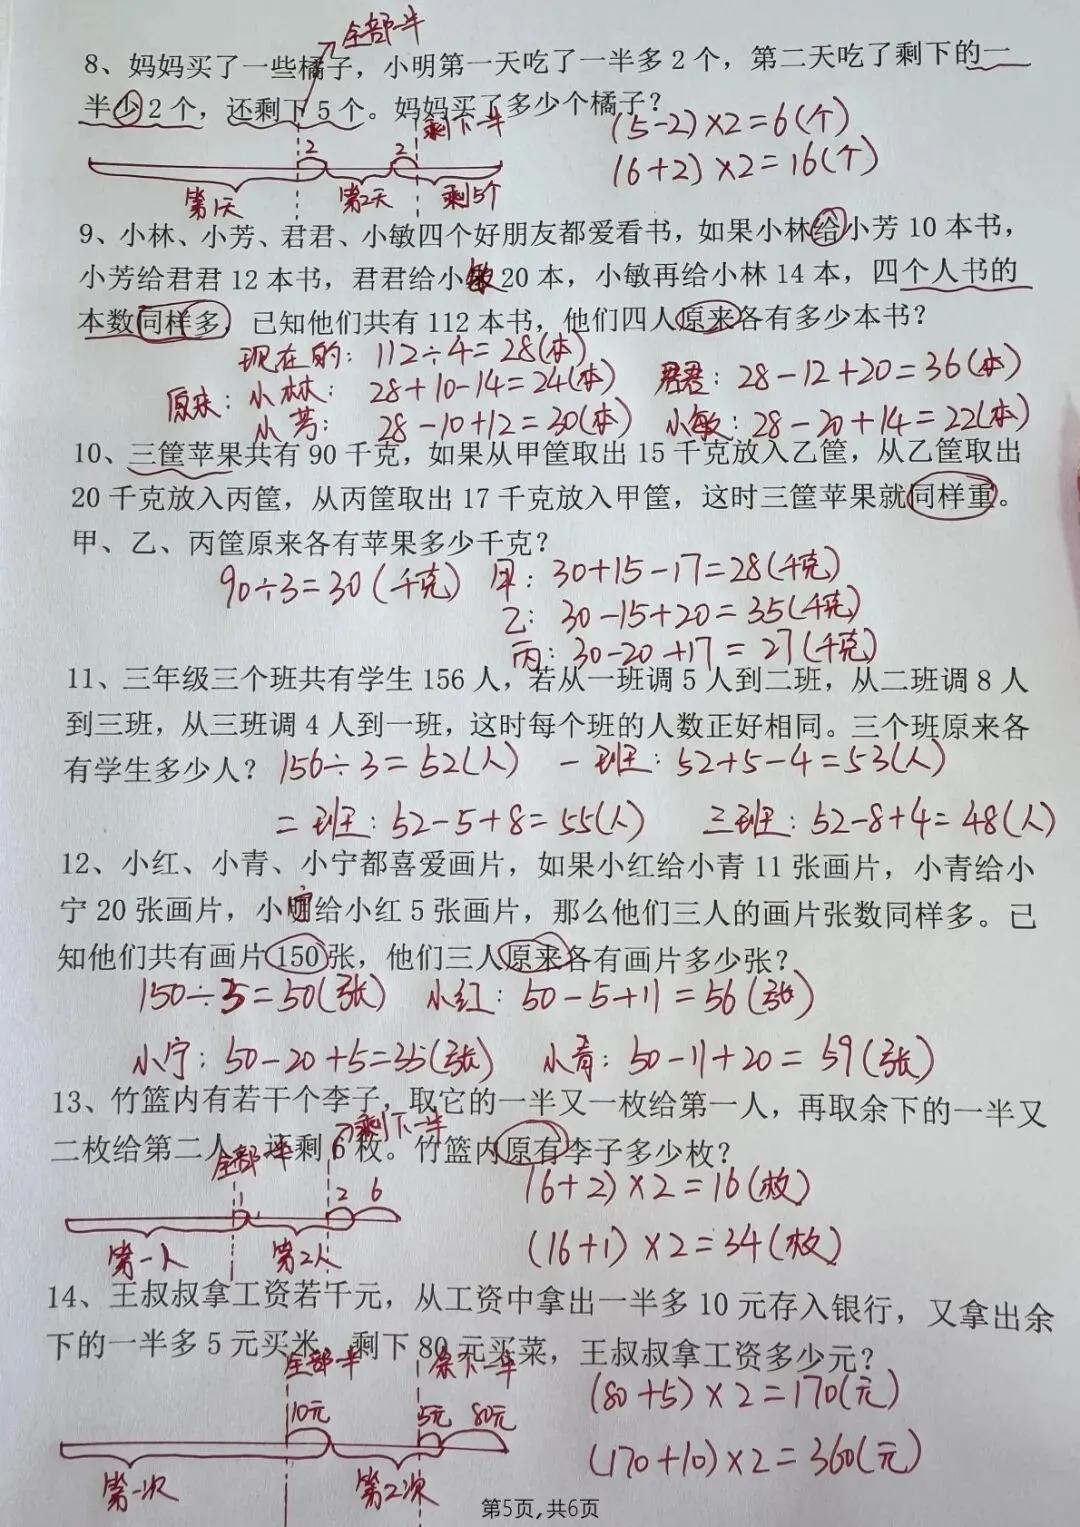 全部一半
8、妈妈买了一些橘子，小明第一天吃了一半多2个，第二天吃了剩下的一
半少2个，还剩下5个。妈妈买了多少个橘子？
剩下一半
(5-2)×2=6(个)
(6+2)×2=16(个)
2 2
第1天 第2天 剩5个
9、小林、小芳、君君、小敏四个好朋友都爱看书，如果小林给小芳10本书，
小芳给君君12本书，君君给小敏20本，小敏再给小林14本，四个人书的
本数同样多，已知他们共有112本书，他们四人原来各有多少本书？
现在的：112÷4=28(本)
原来：小林：28+10-14=24(本) 君君：28-12+20=36(本)
小芳：28-10+12=30(本) 小敏：28-20+14=22(本)
10、三筐苹果共有90千克，如果从甲筐取出15千克放入乙筐，从乙筐取出
20千克放入丙筐，从丙筐取出17千克放入甲筐，这时三筐苹果就同样重。
甲、乙、丙筐原来各有苹果多少千克？
90÷3=30(千克) 甲：30+15-17=28(千克)
乙：30-15+20=35(千克)
丙：30-20+17=27(千克)
11、三年级三个班共有学生156人，若从一班调5人到二班，从二班调8人
到三班，从三班调4人到一班，这时每个班的人数正好相同。三个班原来各
有学生多少人？ 156÷3=52(人) 一班：52+5-4=53(人)
二班：52-5+8=55(人) 三班：52-8+4=48(人)
12、小红、小青、小宁都喜爱画片，如果小红给小青11张画片，小青给小
宁20张画片，小宁给小红5张画片，那么他们三人的画片张数同样多。已
知他们共有画片150张，他们三人原来各有画片多少张？
150÷3=50(张) 小红：50-5+11=56(张)
小宁：50-20+5=35(张) 小青：50-11+20=59(张)
13、竹篮内有若干个李子，取它的一半又一枚给第一人，再取余下的一半又
二枚给第二人，还剩6枚。竹篮内原有李子多少枚？
全部一半 剩下一半
(6+2)×2=16(枚)
1 2 6
(16+1)×2=34(枚)
第一人 第2人
14、王叔叔拿工资若千元，从工资中拿出一半多10元存入银行，又拿出余
下的一半多5元买米，剩下80元买菜，王叔叔拿工资多少元？
全部一半 余下一半
(80+5)×2=170(元)
10元 5元 80元
(170+10)×2=360(元)
第一次 第2次
第5页,共6页